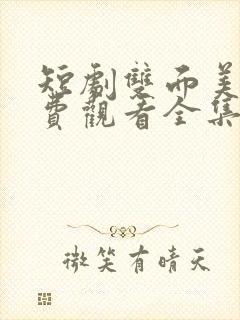 短劇雙而美
費觀看全集
微笑有晴天